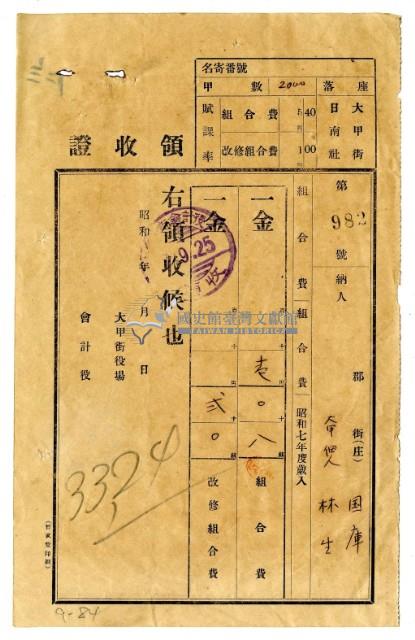 名寄番號
甲數 2000
座落 大甲街日南社
賦課率
組合費 40
改修組合費 1.00
領收證
第 982 號納人
郡
街(庄)
国庫
林生
組合費組合費 昭和七年度歲入
一金 壱〇八 組合費
一金 弐〇 改修組合費
右領收候也
昭和 年 月 日
大甲街役場
會計役
9.25
收
國史館臺灣文獻館
TAIWAN HISTORICA
3324
9-84